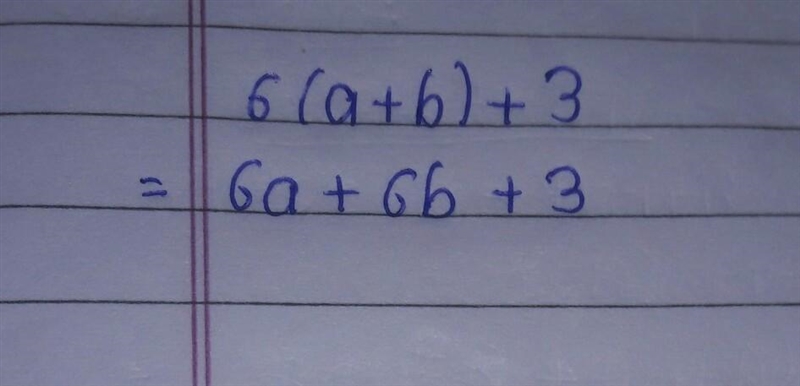 6(a+b)+3
= 6a + 6b + 3